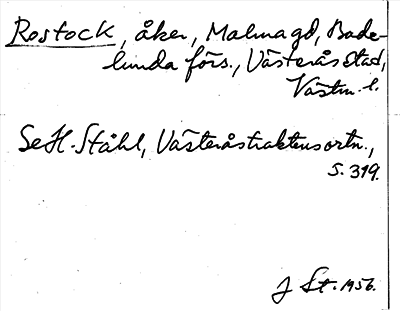 Rostock, åker, Malmagd, Bade-
lunda förs., Västerås stad,
Västm. l.
Se H. Ståhl, Västeråstraktens ortn.,
s. 319.
J St. 1956.